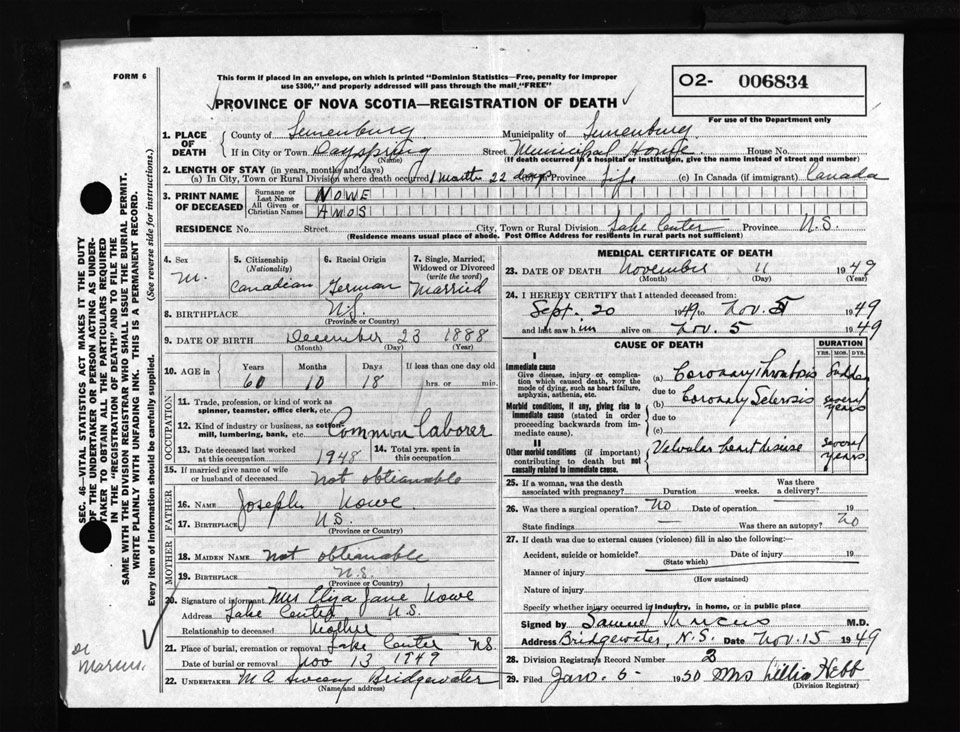 FORM 6
This form if placed in an envelope, on which is printed "Dominion Statistics—Free, penalty for improper
use $300," and properly addressed will pass through the mail "FREE"
O2- 006834
For use of the Department only
PROVINCE OF NOVA SCOTIA—REGISTRATION OF DEATH
1. PLACE OF DEATH
County of Lunenburg Municipality of Lunenburg
If in City or Town Dayspring Street Municipal Home House No.
(Name) (If death occurred in a hospital or institution, give the name instead of street and number)
2. LENGTH OF STAY (in years, months and days)
(a) In City, Town or Rural Division where death occurred 1 month 22 days (b) Province life (c) In Canada (if immigrant) Canada
3. PRINT NAME OF DECEASED
Surname or Last Name NOWE
All Given or Christian Names AMOS
RESIDENCE No. Street City, Town or Rural Division Lake Center Province N.S.
(Residence means usual place of abode. Post Office Address for residents in rural parts not sufficient)
4. Sex M.
5. Citizenship (Nationality) Canadian
6. Racial Origin German
7. Single, Married, Widowed or Divorced (write the word) Married
8. BIRTHPLACE N.S.
(Province or Country)
9. DATE OF BIRTH December 23 1888
(Month) (Day) (Year)
10. AGE in Years Months Days If less than one day old
60 10 18 hrs. or min.
OCCUPATION
11. Trade, profession, or kind of work as
spinner, teamster, office clerk, etc.
12. Kind of industry or business, as cotton-
mill, lumbering, bank, etc. Common Laborer
13. Date deceased last worked at this occupation 1948
14. Total yrs. spent in this occupation
15. If married give name of wife
or husband of deceased Not obtianable
FATHER
16. Name Joseph Nowe
17. Birthplace N.S.
(Province or Country)
MOTHER
18. Maiden Name Not obtianable
19. Birthplace N.S.
(Province or Country)
20. Signature of informant Mrs Eliza Jane Nowe
Address Lake Center N.S.
Relationship to deceased Mother
21. Place of burial, cremation or removal Lake Center N.S.
Date of burial or removal Nov 13 1949
22. UNDERTAKER M A Sweeny Bridgewater
(Name and address)
MEDICAL CERTIFICATE OF DEATH
23. DATE OF DEATH November 11 1949
(Month) (Day) (Year)
24. I HEREBY CERTIFY that I attended deceased from:
Sept. 20 1949 to Nov. 5 1949
and last saw him alive on Nov. 5 1949
CAUSE OF DEATH DURATION
YRS. MOS. DYS.
I
Immediate cause
Give disease, injury or complica-
tion which caused death, NOT the
mode of dying, such as heart failure,
asphyxia, asthenia, etc.
(a) Coronary Thrombosis Sudden
due to
Morbid conditions, if any, giving rise to
immediate cause (stated in order
proceeding backwards from im-
mediate cause).
(b) Coronary Sclerosis several years
due to
(c)
II
Other morbid conditions (if important)
contributing to death but not
causally related to immediate cause.
Valvular heart disease Several years
25. If a woman, was the death
associated with pregnancy? Duration weeks. Was there a delivery?
26. Was there a surgical operation? No Date of operation 19
State findings — Was there an autopsy? No
27. If death was due to external causes (violence) fill in also the following:—
Accident, suicide or homicide? Date of injury 19
(State which)
Manner of injury
(How sustained)
Nature of injury
Specify whether injury occurred in industry, in home, or in public place
Signed by Samuel Marcus M.D.
Address Bridgewater, N.S. Date Nov. 15 1949
28. Division Registrar's Record Number 2
29. Filed Jan. 5- 1950 Mrs Lillia Hebb
(Division Registrar)
SEC. 46—VITAL STATISTICS ACT MAKES IT THE DUTY
OF THE UNDERTAKER OR PERSON ACTING AS UNDER-
TAKER TO OBTAIN ALL THE PARTICULARS REQUIRED
IN THE "REGISTRATION OF DEATH" AND TO FILE THE
SAME WITH THE DIVISION REGISTRAR WHO SHALL ISSUE THE BURIAL PERMIT.
WRITE PLAINLY WITH UNFADING INK. THIS IS A PERMANENT RECORD.
Every item of information should be carefully supplied. (See reverse side for instructions.)
Marcus.